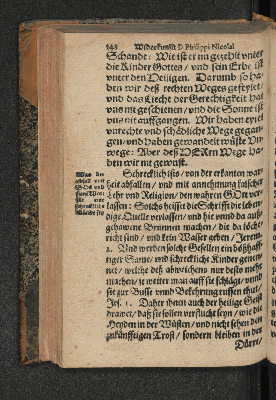 148 Widerkunfft D. Philippi Nicolai
Schande: Wie ist er nu gezehlt vnter
die Kinder Gottes / vnd sein Erbe ist
vnter den Heiligen. Darumb so ha-
ben wir deß rechten Weges gefeylet /
vnd das Liecht der Gerechtigkeit hat
vns nit geschienen / vnd die Sonne ist
vns nit auffgangen. Wir haben eytel
vnrechte vnd schädliche Wege gegan-
gen / vnd haben gewandelt wüste Vn-
wege: Aber deß HERrn Wege ha-
ben wir nit gewust.
Was der
abfall von
Gott vnd
seinem Wort
für eine
schreckliche
Sünde sey
Schrecklich ists / von der erkanten war-
heit abfallen / vnd mit annehmung falscher
Lehr vnd Religion / den wahren GOtt ver-
lassen: Solchs heisset die Schrifft die leben-
dige Quelle verlassen / vnd hie vnnd da auß-
gehawene Brunnen machen / die da löche-
richt sind / vnd kein Wasser geben / Jerem.
2. Vnd werden solche Gesellen ein boßhaff-
tiger Same / vnd schreckliche Kinder genen-
net / welche deß abweichens nur desto mehr
machen / je weiter man auff sie schlägt / vnnd
sie zur Busse vnnd Bekehrung ruffen thut /
Jes. 1. Daher ihnen auch der heilige Geist
drawet / daß sie sollen verflucht seyn / wie die
Heyden in der Wüsten / vnd nicht sehen den
zukünfftigen Trost / sondern bleiben in der
Dürre /